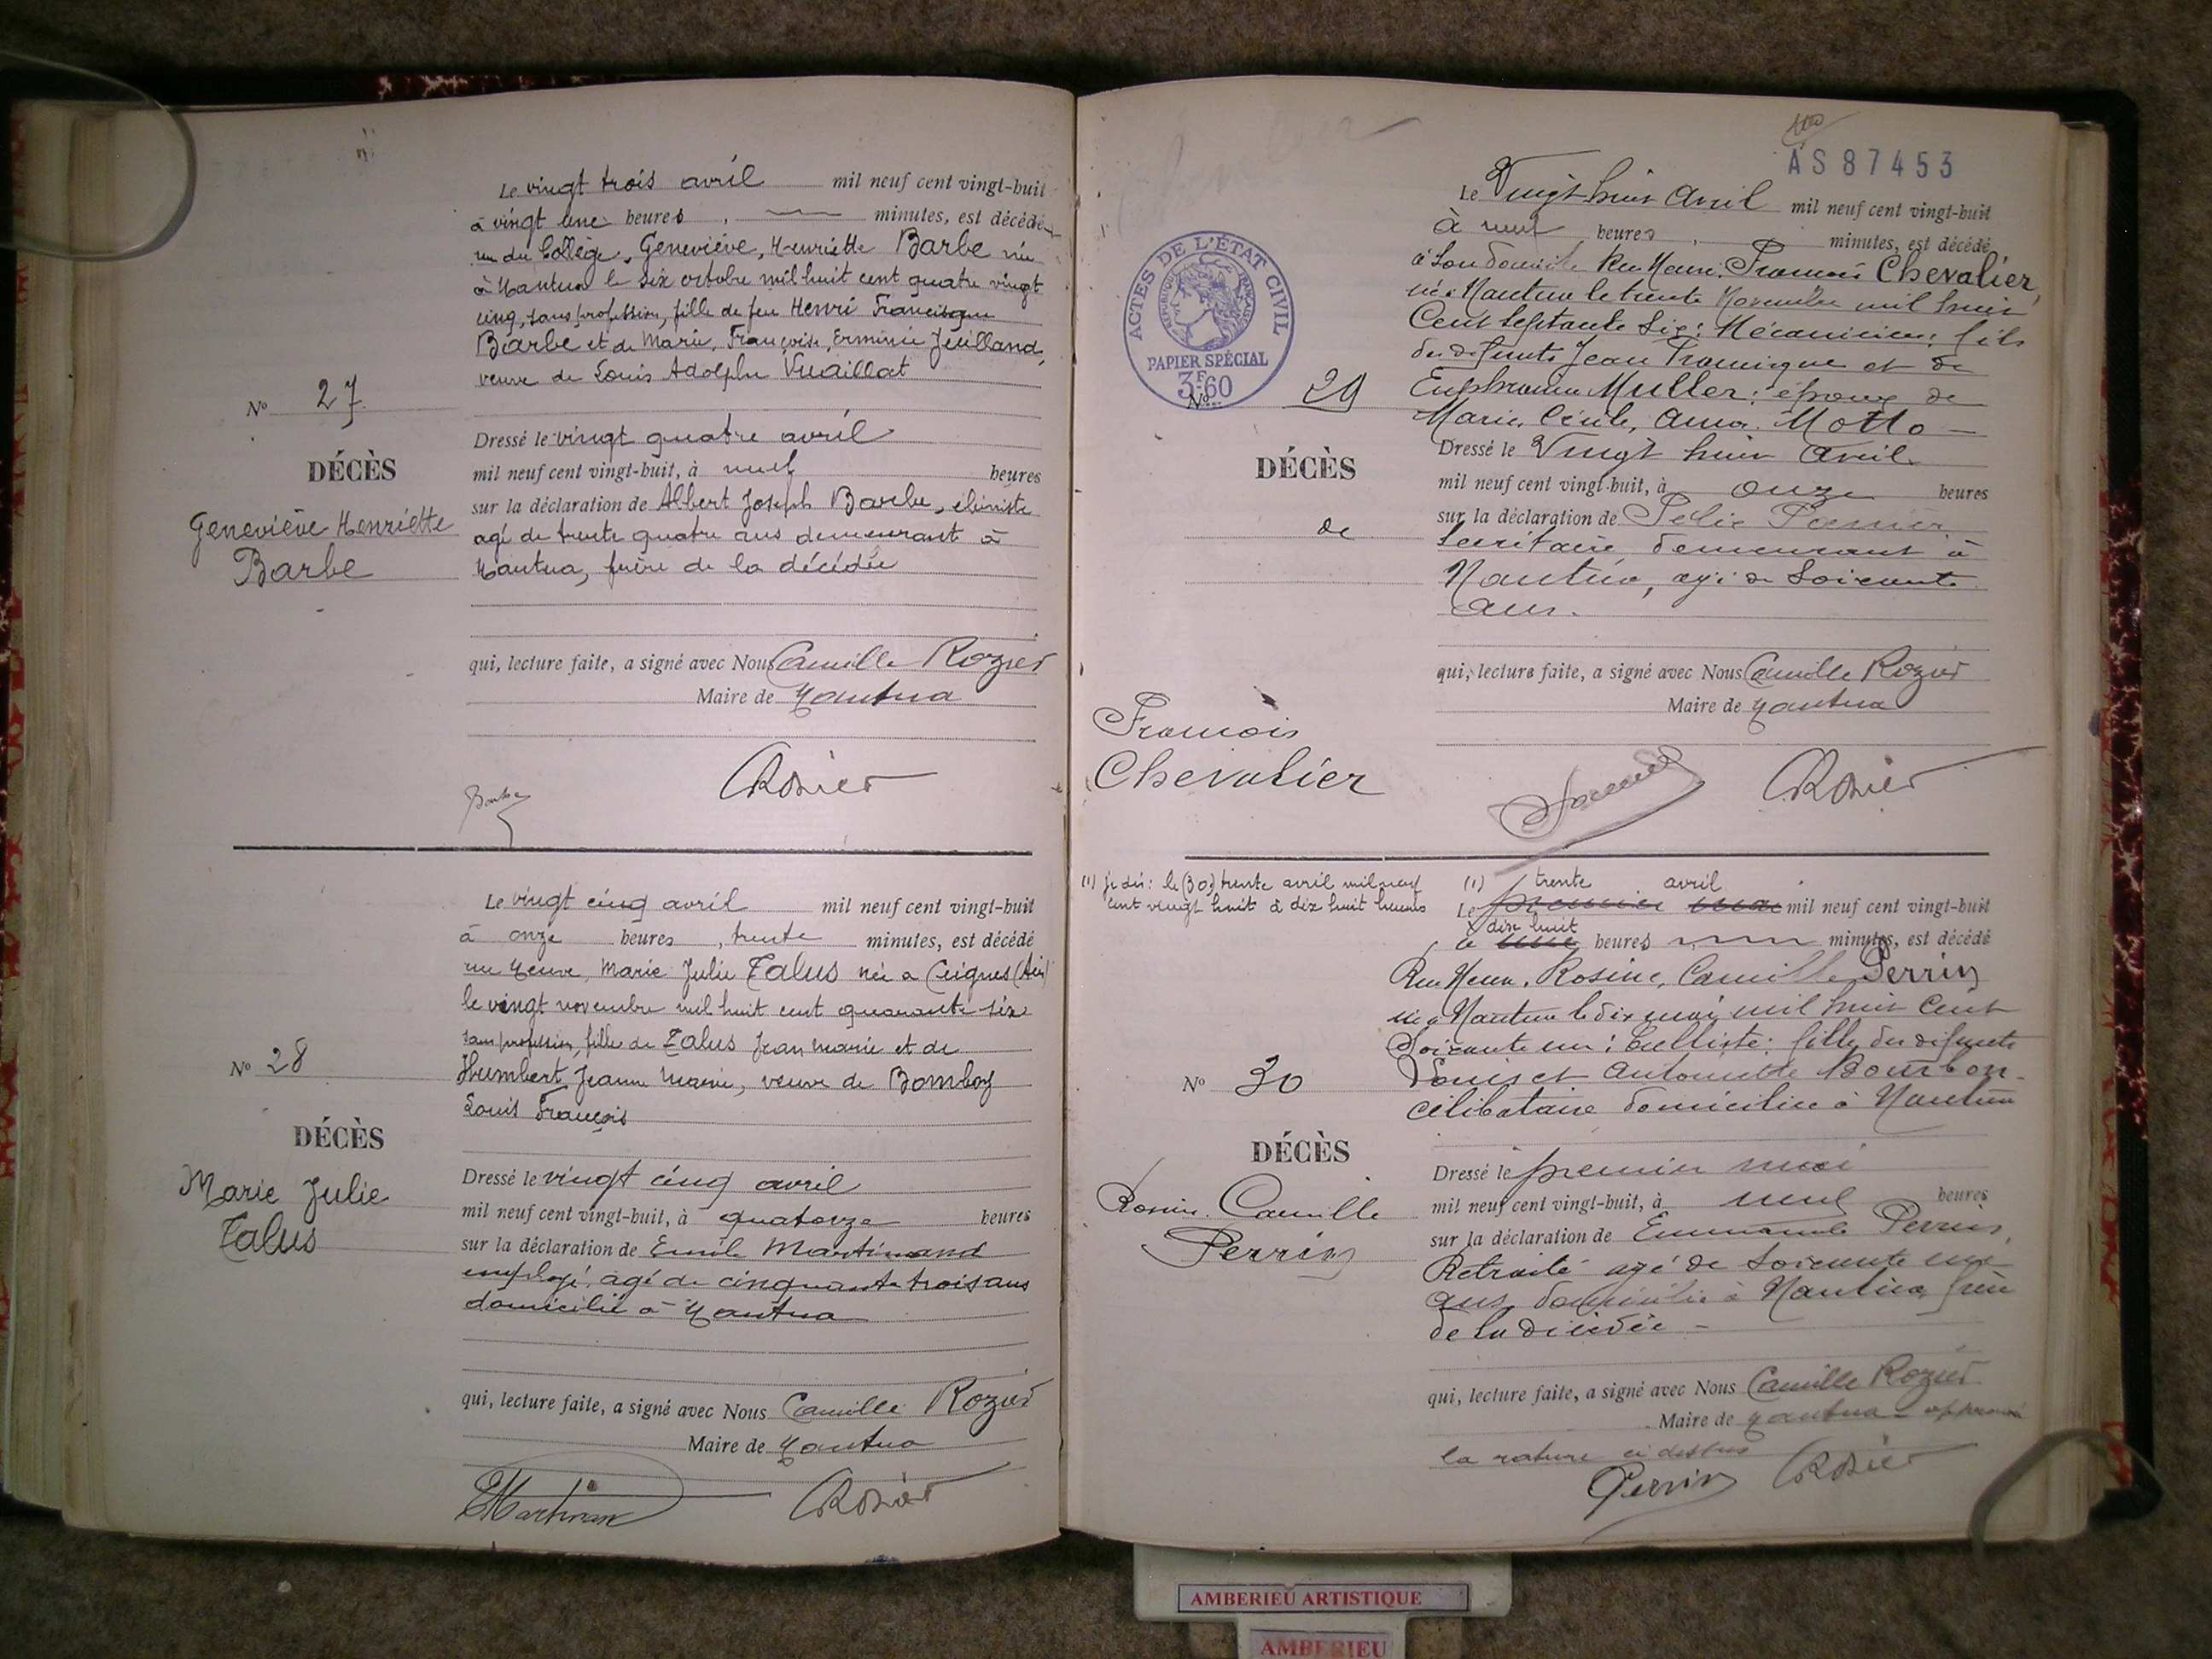 Le vingt trois avril mil neuf cent vingt-huit
à vingt une heures, minutes, est décédée
rue du Collège, Geneviève, Henriette Barbe née
à Nantua le six octobre mil huit cent quatre vingt
cinq, sans profession, fille de feu Henri Francisque
Barbe et de Marie, Françoise, Erminie Juilland,
veuve de Louis Adolphe Vuaillat
No 27
DÉCÈS
Geneviève Henriette
Barbe
Dressé le vingt quatre avril
mil neuf cent vingt-huit, à neuf heures
sur la déclaration de Albert Joseph Barbe, ébéniste
agé de trente quatre ans demeurant à
Nantua, frère de la décédée
qui, lecture faite, a signé avec Nous Camille Rozier
Maire de Nantua
Barbe
CRozier
Le vingt cinq avril mil neuf cent vingt-huit
à onze heures, trente minutes, est décédé
rue Neuve, Marie Julie Talus née a Ceignes (Ain)
le vingt novembre mil huit cent quarante six
sans profession, fille de Talus Jean Marie et de
Humbert Jeanne Marie, veuve de Bomboy
Louis François
No 28
DÉCÈS
Marie Julie
Talus
Dressé le vingt cinq avril
mil neuf cent vingt-huit, à quatorze heures
sur la déclaration de Emile Martinand
employé, agé de cinquante trois ans
domicilié à Nantua
qui, lecture faite, a signé avec Nous Camille Rozier
Maire de Nantua
EMartinand
CRozier
AS 87453
Le Vingt huit Avril mil neuf cent vingt-huit
À neuf heures, minutes, est décédé
à son domicile Rue Neuve. François Chevalier,
né à Nantua le trente Novembre mil huit
Cent Septante Six: Mécanicien: fils
des défunts Jean Francisque et de
Euphrosine Muller: époux de
Marie, Cécile, Anna. Motto
ACTES DE L'ÉTAT CIVIL
RÉPUBLIQUE FRANÇAISE
PAPIER SPÉCIAL
3F60
No 29
DÉCÈS
de
François
Chevalier
Dressé le Vingt huit Avril
mil neuf cent vingt-huit, à onze heures
sur la déclaration de
Secrétaire, demeurant à
Nantua, agé de Soixante
ans.
qui, lecture faite, a signé avec Nous Camille Rozier
Maire de Nantua
CRozier
(1) je dis: le (30) trente avril mil neuf
cent vingt huit à dix huit heures
(1) trente avril
Le premier mai mil neuf cent vingt-huit
dix huit
à heures minutes, est décédé
Rue Neuve, Rosine, Camille Perrin
née à Nantua le dix mai mil huit Cent
Soixante un: Tulliste: fille des défunts
Louis et Antoinette Bourbon
célibataire domiciliée à Nantua
No 30
DÉCÈS
Rosine Camille
Perrin
Dressé le premier mai
mil neuf cent vingt-huit, à neuf heures
sur la déclaration de Emmanuel Perrin,
Retraité agé de Soixante
ans, domicilié à Nantua, frère
de la décédée
qui, lecture faite, a signé avec Nous Camille Rozier
Maire de Nantua approuvé
la rature ci dessus
Perrin
CRozier
AMBERIEU ARTISTIQUE
AMBERIEU